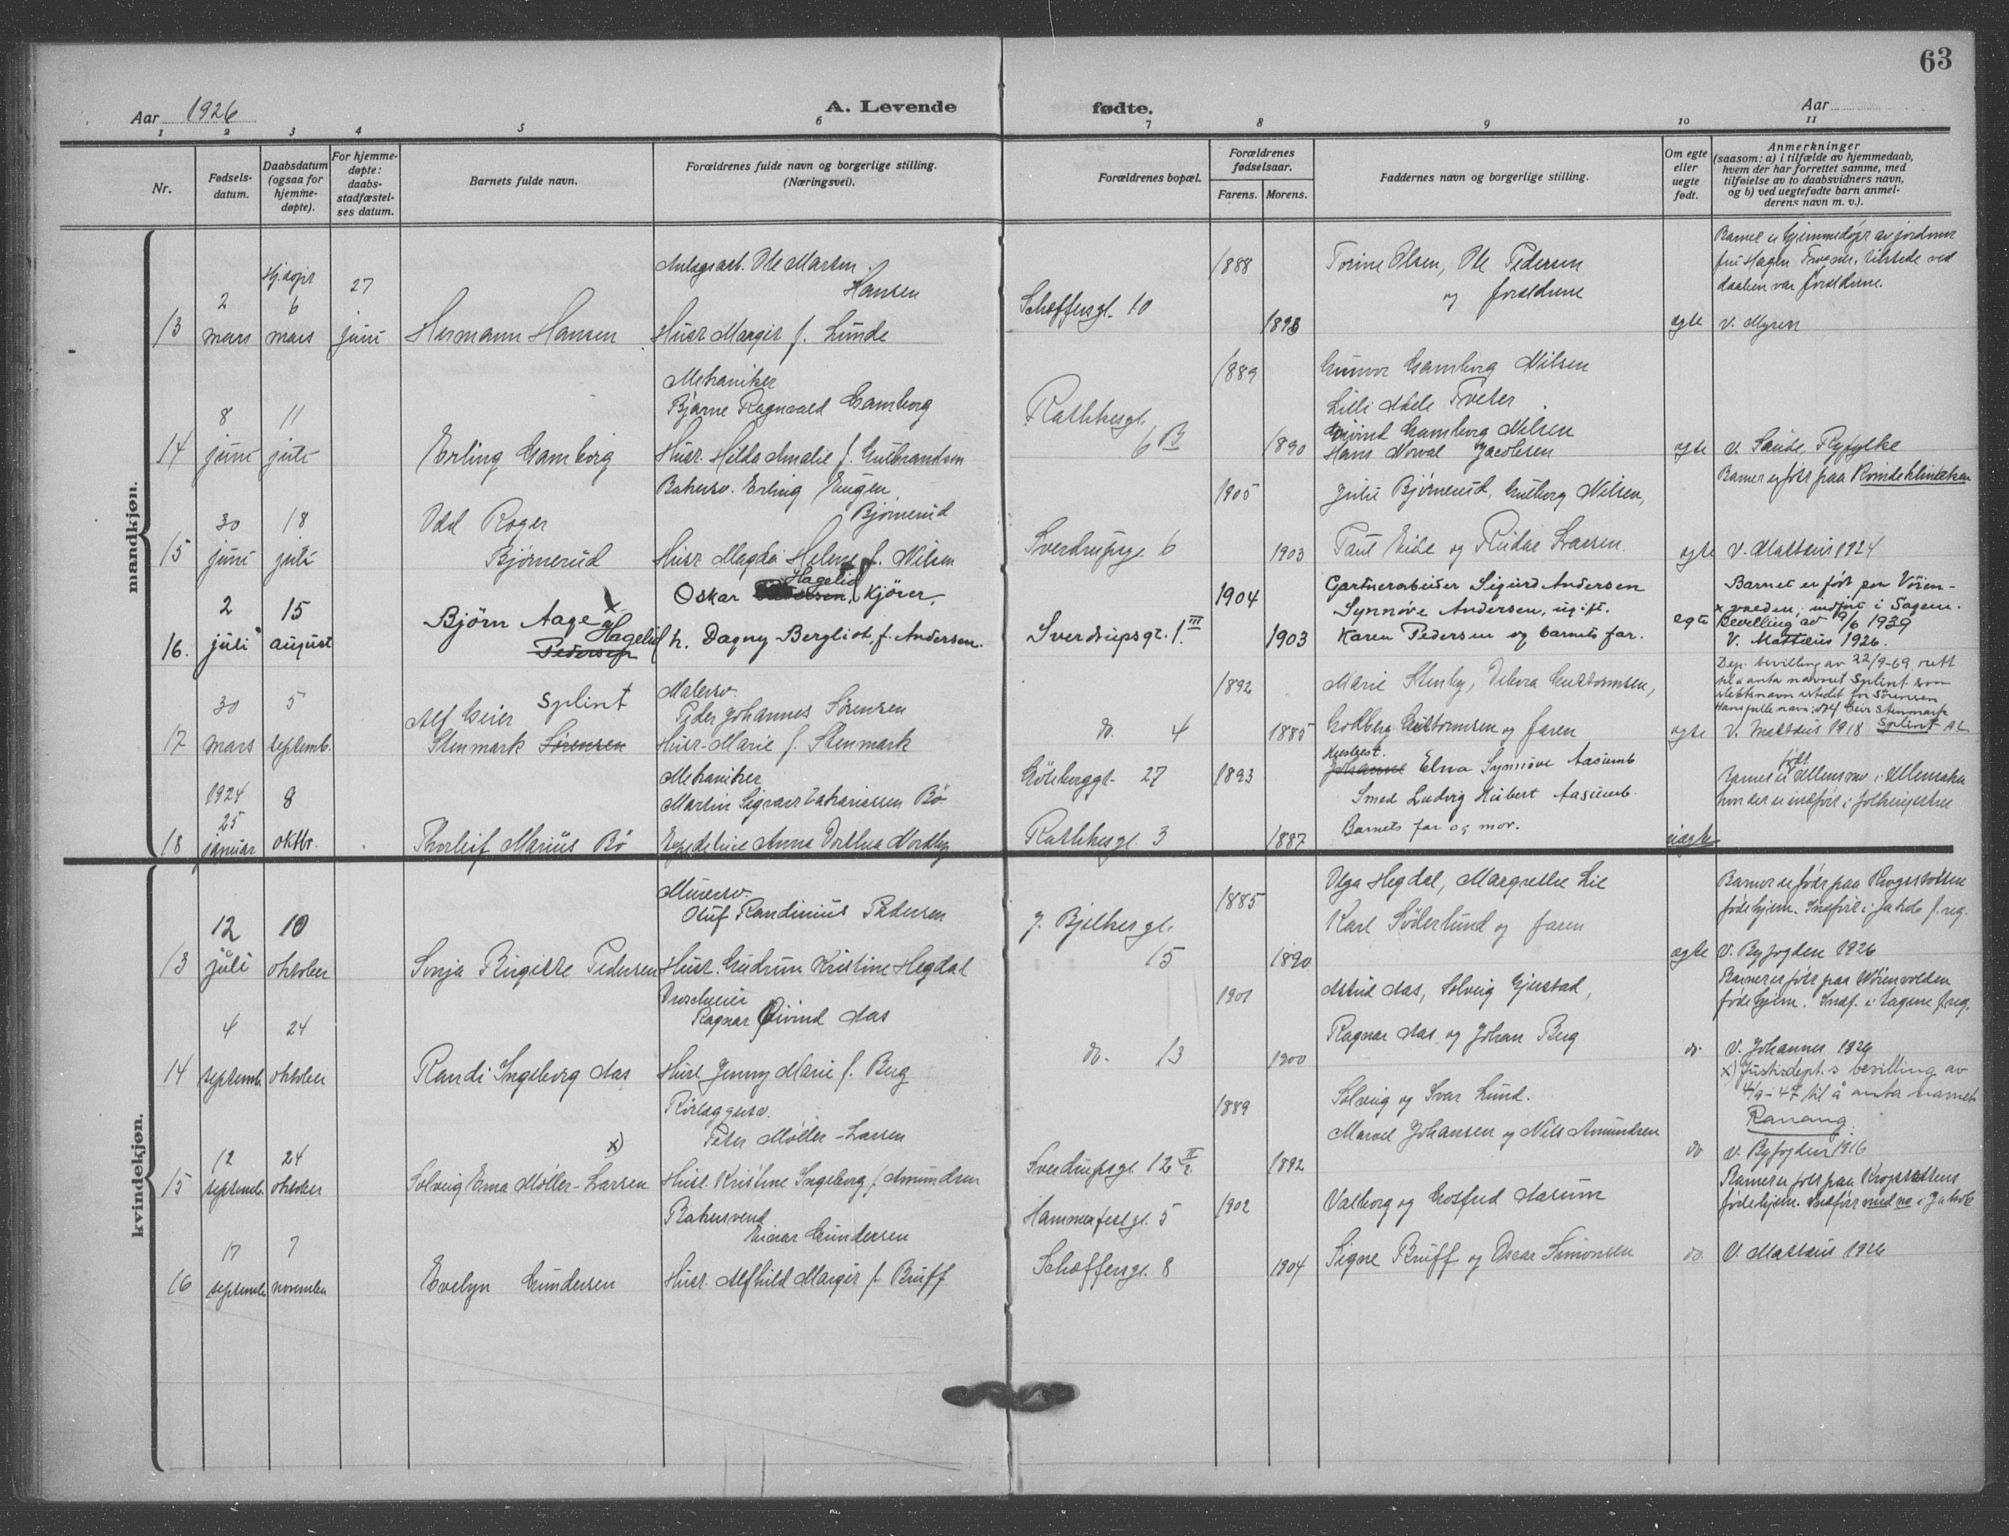 63
Aar 1926
A. Levende
fødte.
Aar
1 2 3 4 5 6 7 8 9 10 11
Nr.
Fødsels-
datum.
Daabsdatum
(ogsaa for
hjemme-
døpte).
For hjemme-
døpte:
daabs-
stadfæstel-
ses datum.
Barnets fulde navn.
Forældrenes fulde navn og borgerlige stilling.
(Næringsvei).
Forældrenes bopæl.
Forældrenes
fødselsaar.
Farens. Morens.
Faddernes navn og borgerlige stilling.
Om egte
eller
uegte
født.
Anmerkninger
(saasom: a) i tilfælde av hjemmedaab,
hvem der har forrettet samme, med
tilføielse av to daabsvidners navn,
og b) ved uegtefødte barn anmel-
derens navn m. v.).
mandkjøn.
13
2
mars
Hj.døpt
6
mars
27
juni
Hermann Hansen
Anlegsarb. Ole Marten
Hansen
Husr Margit f. Lunde
Schæffersgt. 10
1888
1893
Torine Olsen, Ole Pedersen
og foreldrene
egte
Barnet er hjemmedøpt av jordmor
fru Hagen Tveter, tilstede ved
daaben var foreldrene.
V. Myren
14
8
juni
11
juli
Erling Gamborg
Mekaniker
Bjarne Ragnvald Gamborg
Husr. Hilda Amalie f. Gulbrandsen
Rathkesgt.
6 B
1889
1890
Gunvor Gamborg Nilsen
Lilli Adele Tveter
Eivind Gamborg Nilsen
Hans Norval Jacobsen
egte
V. Saude, Ryfylke
15
30
juni
18
juli
Odd Roger
Bjørnerud
Bakersv. Erling Eugen
Bjørnerud
Husr Magda Helene f. Nilsen
Sverdrupsgt. 6
1905
1903
Julie Bjørnerud, Gudborg Nilsen,
Paul Eide og Reidar Larsen.
egte
Barnet er født paa Kvindeklinikken
V. Mattæus 1924
16.
2
juli
15
august
Bjørn Aage x
Hagelid
Pedersen
Oskar Hagelid, kjører,
h. Dagny Bergliot, f. Andersen.
Sverdrupsgt. 1 III
1904
1903
Gartnerarbeider Sigurd Andersen
Synnøve Andersen, ugift.
Karen Pedersen og barnets far.
egte
Barnet er født paa Vøien-
volden, indført i Sagene.
x Bevilling av 19/6 1939
V. Mattæus 1926.
17
30
mars
5
septemb.
Alf Geir Splint
Stenmark Sørensen
Malersv.
Peder Johannes Sørensen
Husr. Marie f. Stenmark
do. 4
1892
1885
Marie Stenby, Debora Guttormsen,
Gotberg Guttormsen og faren
egte
Dep. bevilling av 22/9-69 rett
til å anta navnet Splint som
slektsnavn istedet for Sørensen
Hans fulle navn: Alf Geir Stenmark
V. Mattæus 1918 Splint
18
1924
25
januar
8
oktbr.
Thorleif Marius Bø
Mekaniker
Martin Sigvart Zakariassen Bø
Expeditrice Anna Dorthea Nordby
Göteborggt. 27
Rathkesgt. 3
1893
1887
Johanne Elna Synnøve Aasiumb
Smed Ludvig Hubert Aasiumb.
Barnets far og mor.
uegte
Barnet er født i Ullensaker
hvor det er indført i folkeregistret
kvindekjøn.
13
12
juli
10
oktober
Sonja Birgitte Pedersen
Murersv.
Oluf Randinius Pedersen
Husr. Gudrun Kristine Hegdal
J. Bjelkesgt.
15
1885
1890
Olga Hegdal, Margrethe Lie
Karl Söderlund og faren
egte
Barnet er født paa Krogstøtten
fødehjem. Indført i Jakobs f. reg.
V. Byfogden 1926
14
4
septemb.
24
oktober
Randi Ingeborg Aas
Droscheeier
Ragnar Øivind Aas
Husr Jenny Marie f. Berg
do. 13
1901
1900
Astrid Aas, Solveig Gjerstad,
Ragnar Aas og Johan Berg
do.
Barnet er født paa Vøienvolden
fødehjem. Indf. i Sagene f. reg.
V. Johannes 1926
15
12
septemb.
24
oktober
Solveig Erna Møller-Larsen x)
Rørlæggersv.
Peter Møller-Larsen
Husr. Kristine Ingeborg f. Amundsen
Sverdrupsgt. 12 II
1889
1892
Solveig og Ivar Lund.
Marvel Johansen og Nils Amundsen
do
x) Justisdept.s bevilling av
4/9-47 til å anta navnet
Ranang.
V. Byfogden 1916
16
17
septemb.
7
november
Evelyn Gundersen
Bakersvend
Einar Gundersen
Husr. Alfhild Margit f. Bruff
Hammerfestgt. 5
Schæffersgt. 8
1902
1904
Valborg og Gotfred Aasum
Signe Bruff og Oscar Simonsen
do
Barnet er født paa Krogstøttens
fødehjem. Indført i Jakob
V. Mattæus 1926